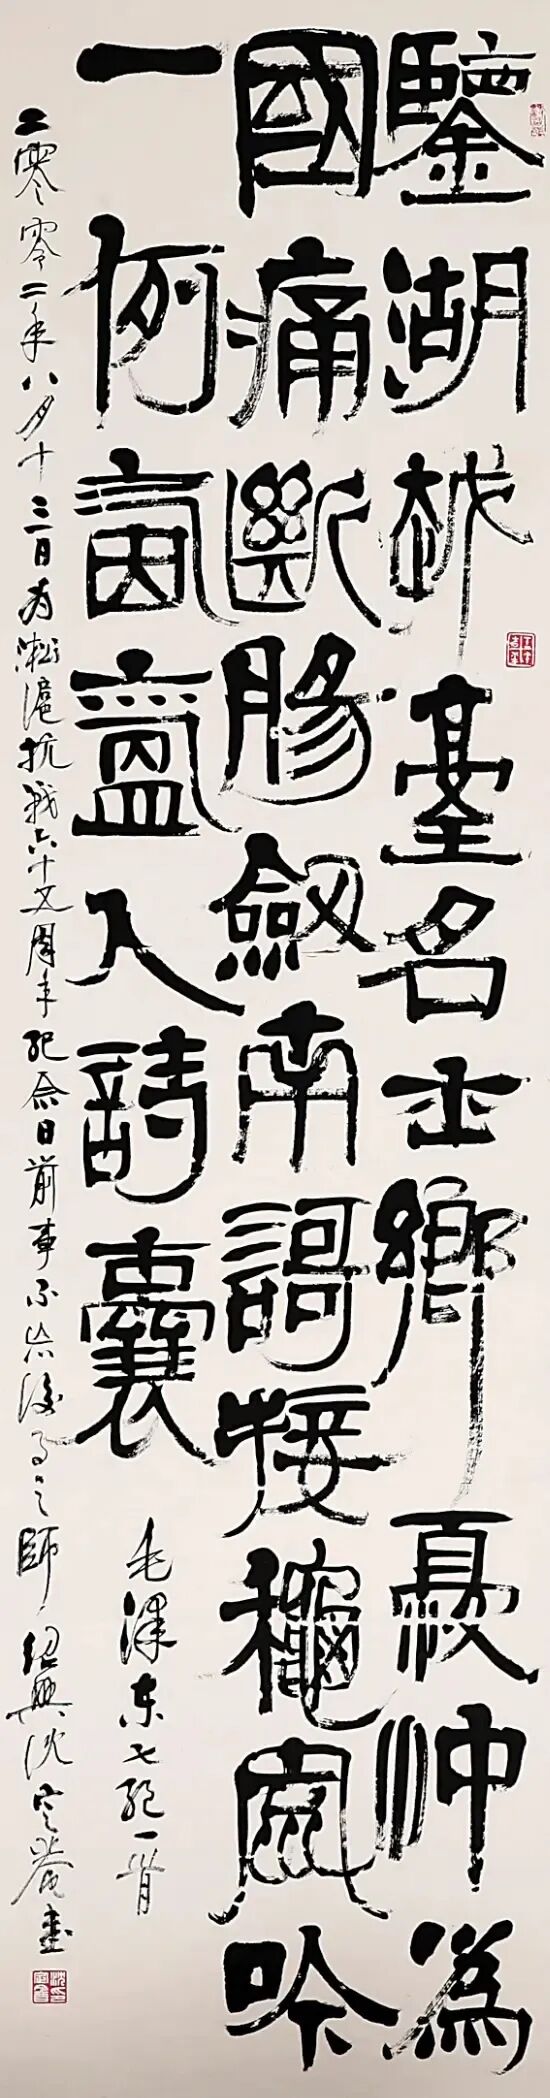 鑒湖越臺名士鄉憂忡爲
國痛斷腸劔南謌接穐風吟
一例氤氳入詩囊
毛澤东七绝一首
二零零二年八月十三日为淞滬抗战六十五周年纪念日前事不忘後事之師绍興沈定菴书